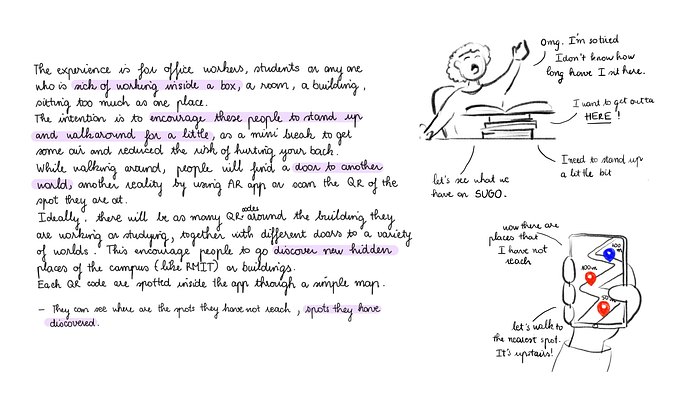 The experience is for office workers, students or any one
who is sick of working inside a box, a room, a building,
sitting too much as one place.
The intention is to encourage these people to stand up
and walk around for a little, as a mini break to get
some air and reduced the risk of hurting your back.
While walking around, people will find a door to another
world, another reality by using AR app or scan the QR of the
spot they are at.
Ideally, there will be as many QR codes around the building they
are working or studying, together with different doors to a variety
of worlds. This encourage people to go discover new hidden
places of the campus (like RMIT) or buildings.
Each QR code are spotted inside the app through a simple map.
- They can see where are the spots they have not reach, spots they have
discovered.
Omg. I'm so tired
I don't know how
long have I sit here.
I want to get outta
HERE!
I need to stand up
a little bit
let's see what we
have on SUGO.
now there are
places that
I have not
reach
100
m
100m
50m
let's walk to
the nearest spot.
It's upstairs!